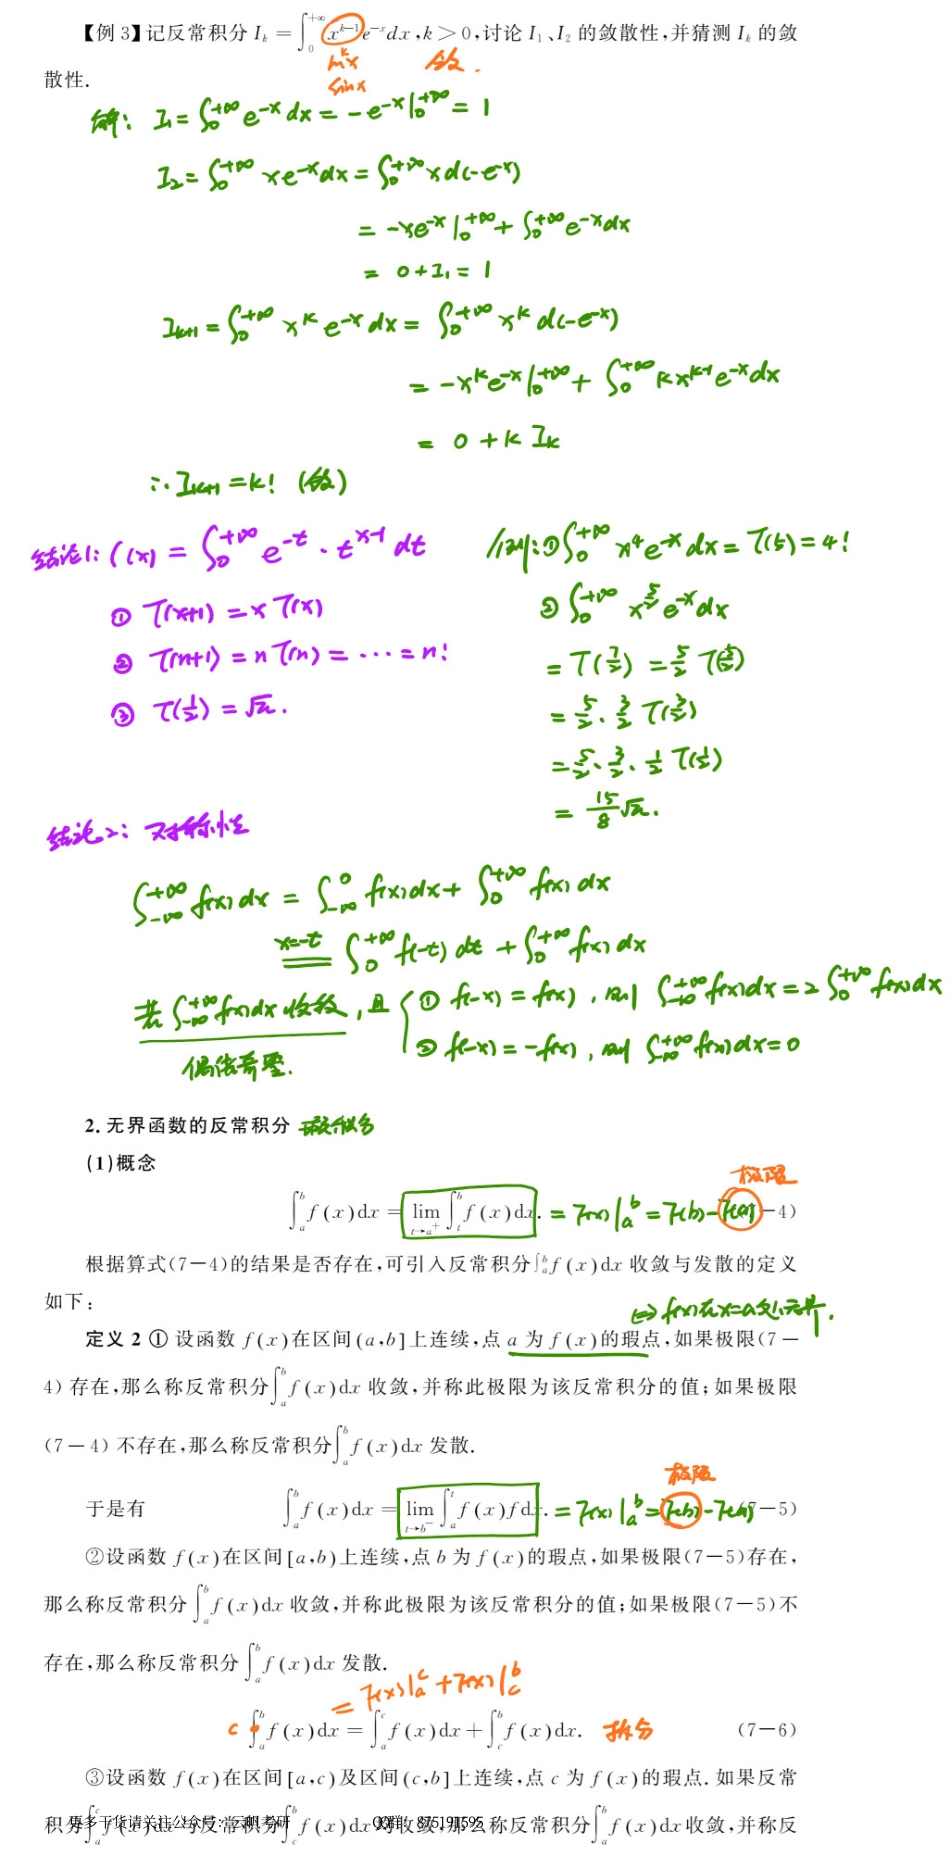 【例 3】记反常积分 I_k = ∫_0^{+∞} x^{k-1}e^{-x}dx, k>0, 讨论 I_1、I_2 的敛散性,并猜测 I_k 的敛
ln^k x 敛.
散性.
sinx
解: I_1 = ∫_0^{+∞} e^{-x}dx = -e^{-x}|_0^{+∞} = 1
I_2 = ∫_0^{+∞} xe^{-x}dx = ∫_0^{+∞} xd(-e^{-x})
= -xe^{-x}|_0^{+∞} + ∫_0^{+∞} e^{-x}dx
= 0+I_1 = 1
I_{k+1} = ∫_0^{+∞} x^k e^{-x}dx = ∫_0^{+∞} x^k d(-e^{-x})
= -x^k e^{-x}|_0^{+∞} + ∫_0^{+∞} kx^{k-1}e^{-x}dx
= 0 + k I_k
∴ I_{k+1} = k! (敛)
结论1: Γ(x) = ∫_0^{+∞} e^{-t}·t^{x-1}dt
① Γ(x+1) = xΓ(x)
② Γ(n+1) = nΓ(n) = ··· = n!
③ Γ(1/2) = √π.
例:① ∫_0^{+∞} x^4 e^{-x}dx = Γ(5) = 4!
② ∫_0^{+∞} x^{5/2} e^{-x}dx
= Γ(7/2) = 5/2 Γ(5/2)
= 5/2 · 3/2 Γ(3/2)
= 5/2 · 3/2 · 1/2 Γ(1/2)
= 15/8 √π.
结论2: 对称性
∫_{-∞}^{+∞} f(x)dx = ∫_{-∞}^0 f(x)dx + ∫_0^{+∞} f(x)dx
x=-t ∫_0^{+∞} f(-t)dt + ∫_0^{+∞} f(x)dx
若 ∫_{-∞}^{+∞} f(x)dx 收敛, 且 { ① f(-x) = f(x), 则 ∫_{-∞}^{+∞} f(x)dx = 2∫_0^{+∞} f(x)dx
② f(-x) = -f(x), 则 ∫_{-∞}^{+∞} f(x)dx = 0
偶倍奇零.
2. 无界函数的反常积分 瑕积分
(1)概念
极限
∫_a^b f(x)dx = lim_{t→a^+} ∫_t^b f(x)dx. = F(x)|_a^b = F(b)-F(a) -4)
根据算式(7-4)的结果是否存在,可引入反常积分∫_a^b f(x)dx 收敛与发散的定义
如下:
⇔ f(x)在x=a处无界.
定义 2 ① 设函数 f(x)在区间(a,b]上连续,点 a 为 f(x)的瑕点,如果极限(7-
4) 存在,那么称反常积分∫_a^b f(x)dx 收敛,并称此极限为该反常积分的值;如果极限
(7-4) 不存在,那么称反常积分∫_a^b f(x)dx 发散.
极限
于是有 ∫_a^b f(x)dx = lim_{t→b^-} ∫_a^t f(x)fdx. = F(x)|_a^b = F(b)-F(a) 7-5)
②设函数 f(x)在区间[a,b)上连续,点 b 为 f(x)的瑕点,如果极限(7-5)存在,
那么称反常积分 ∫_a^b f(x)dx 收敛,并称此极限为该反常积分的值;如果极限(7-5)不
存在,那么称反常积分 ∫_a^b f(x)dx 发散.
= F(x)|_a^c + F(x)|_c^b
c ∫_a^b f(x)dx = ∫_a^c f(x)dx + ∫_c^b f(x)dx. 拆分 (7-6)
③设函数 f(x)在区间[a,c)及区间(c,b]上连续,点 c 为 f(x)的瑕点. 如果反常
积分∫_a^c f(x)dx 与反常积分∫_c^b f(x)dx 均收敛,那么称反常积分∫_a^b f(x)dx 收敛,并称反
更多干货请关注公众号:云帆考研 QQ群:875191595